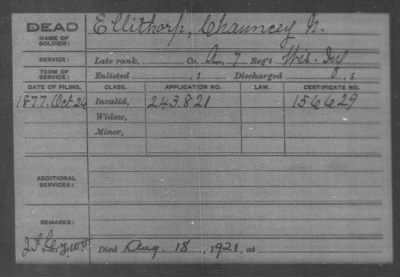 DEAD
NAME OF SOLDIER:
Ellithorp, Chauncey N.
SERVICE:
Late rank, Co. A, 7 Reg't Wis. Inf
TERM OF SERVICE:
Enlisted , 1 Discharged , 1
DATE OF FILING. CLASS. APPLICATION NO. LAW. CERTIFICATE NO.
1877. Oct. 24 Invalid, 243.821 156629
Widow,
Minor,
ADDITIONAL SERVICES:
REMARKS:
Died Aug. 18, 1921, at